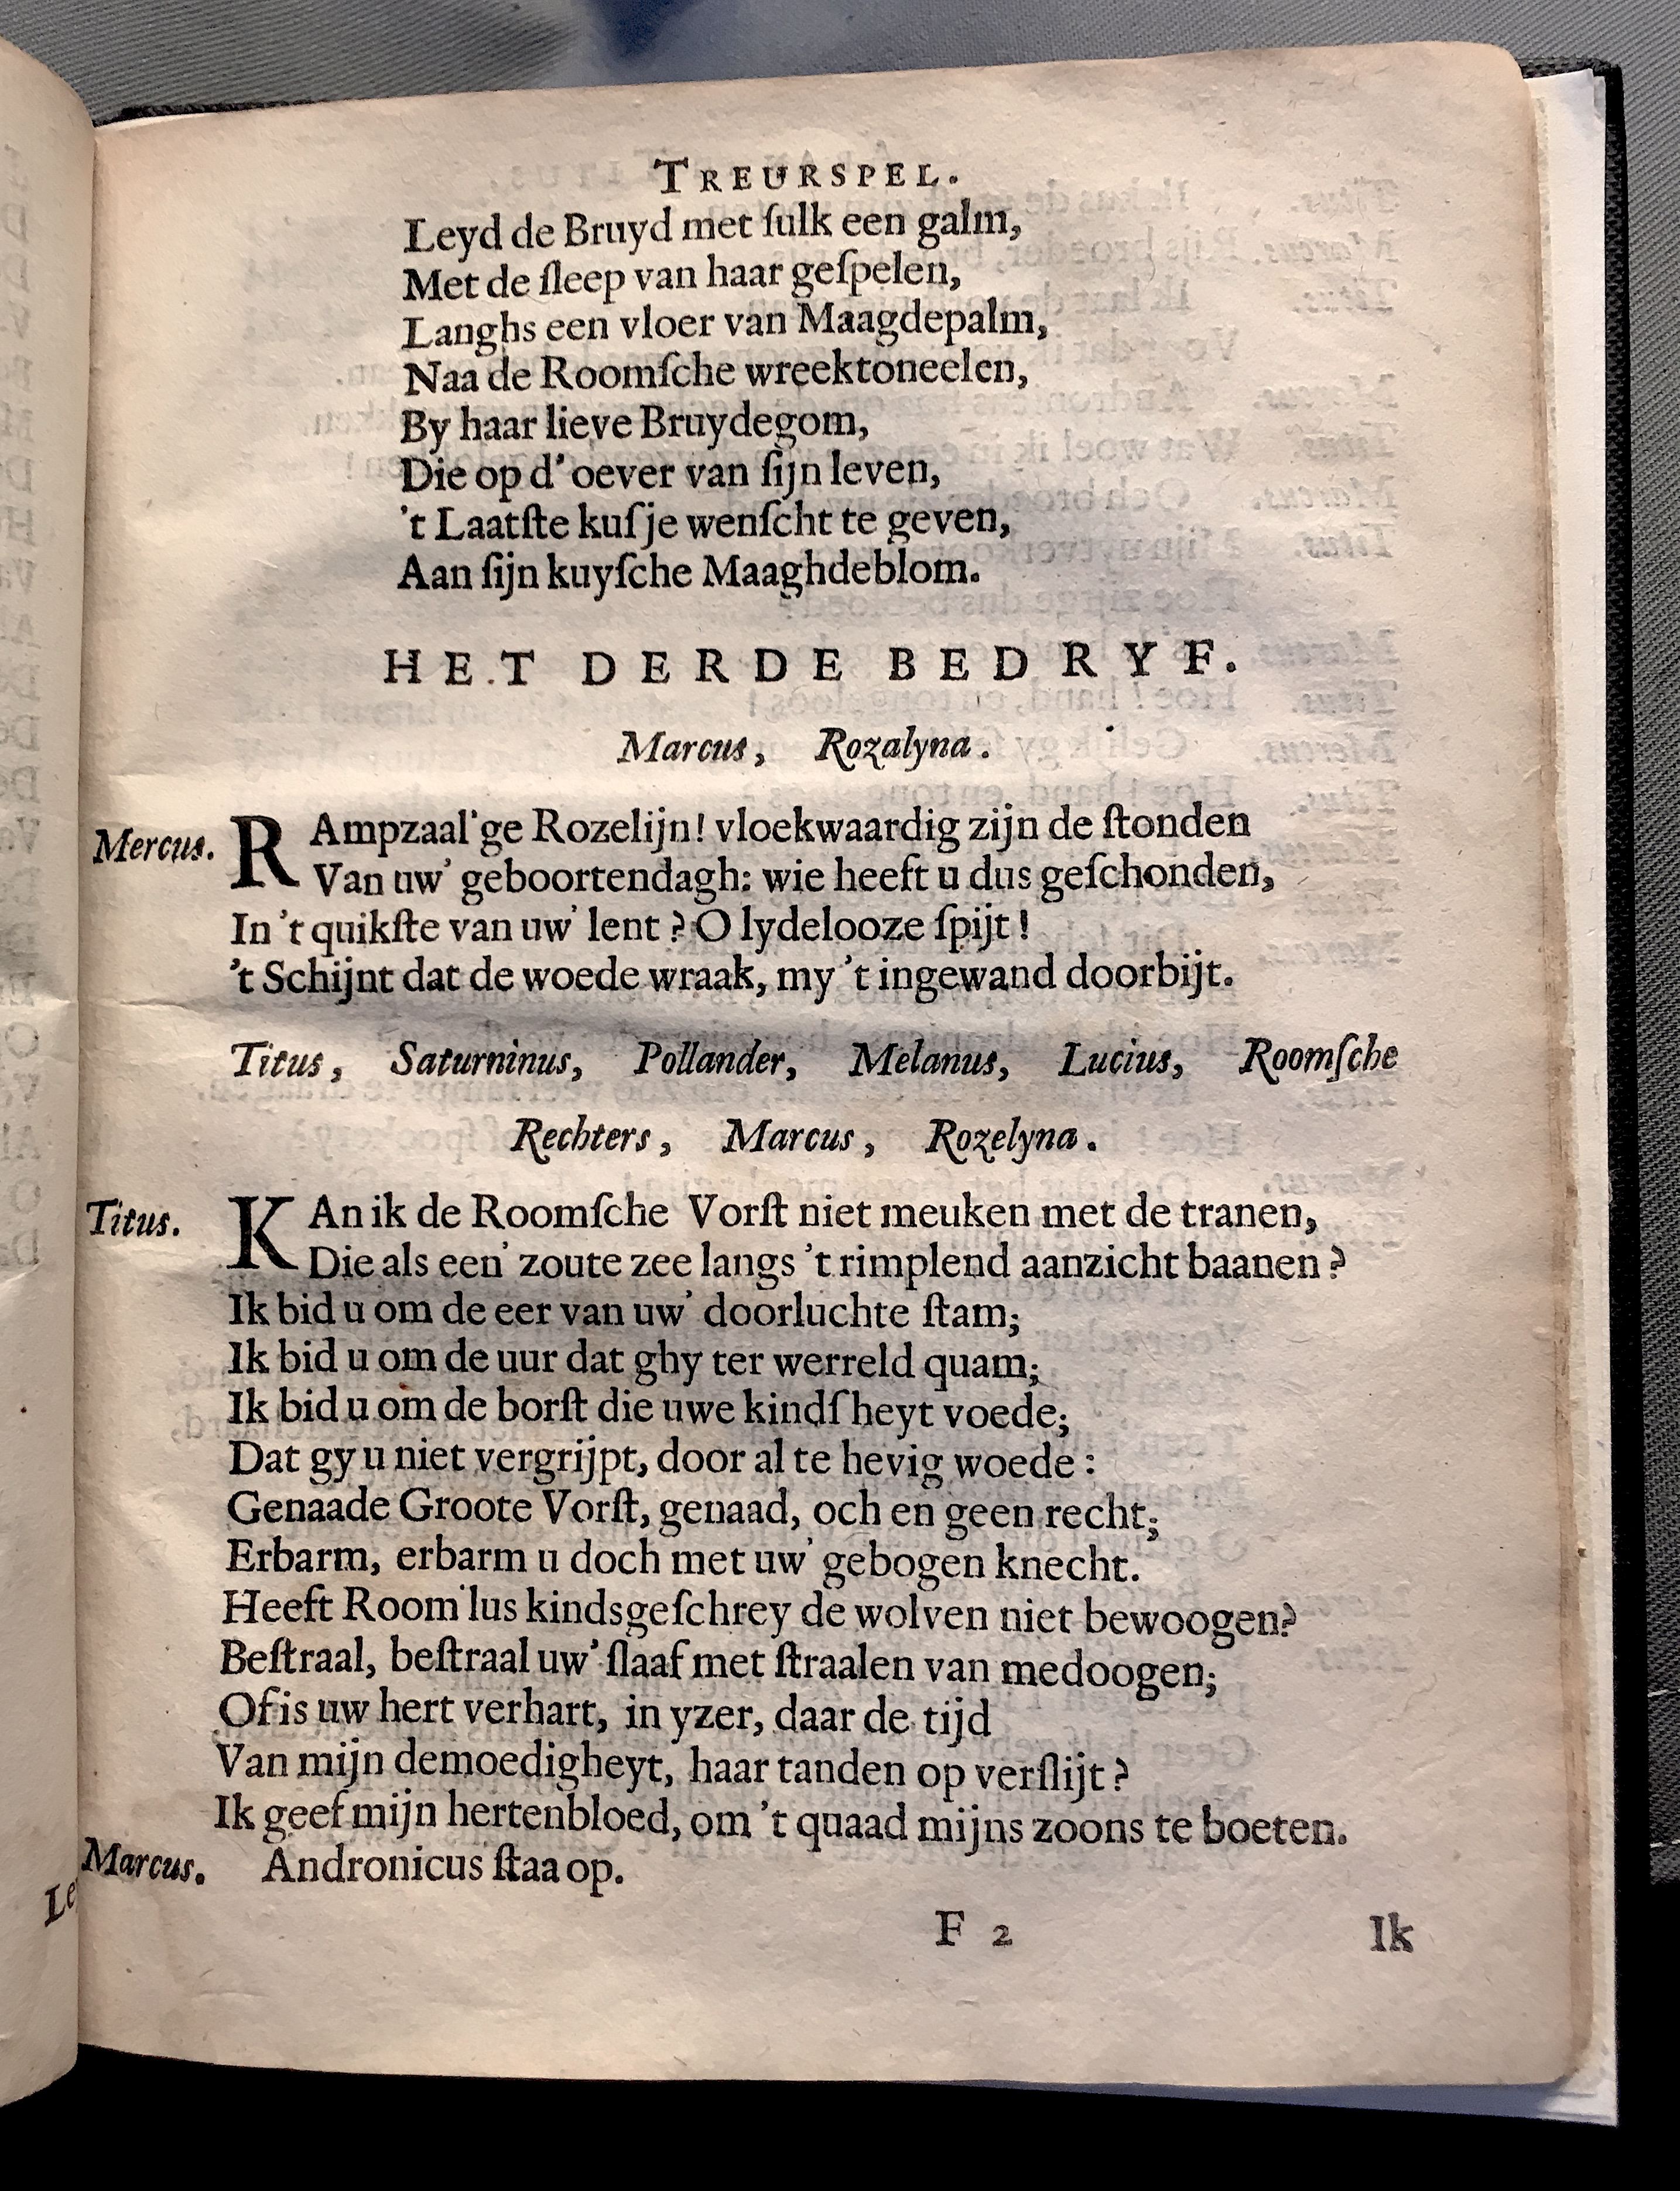 TREURSPEL.
Leyd de Bruyd met ſulk een galm,
Met de ſleep van haar geſpelen,
Langhs een vloer van Maagdepalm,
Naa de Roomſche wreektoneelen,
By haar lieve Bruydegom,
Die op d'oever van ſijn leven,
't Laatſte kuſje wenſcht te geven,
Aan ſijn kuyſche Maaghdeblom.
HET DERDE BEDRYF.
Marcus, Rozalyna.
Mercus. RAmpzaal'ge Rozelijn! vloekwaardig zijn de ſtonden
Van uw' geboortendagh: wie heeft u dus geſchonden,
In 't quikſte van uw' lent? O lydelooze ſpijt!
't Schijnt dat de woede wraak, my 't ingewand doorbijt.
Titus, Saturninus, Pollander, Melanus, Lucius, Roomſche
Rechters, Marcus, Rozelyna.
Titus. KAn ik de Roomſche Vorſt niet meuken met de tranen,
Die als een' zoute zee langs 't rimplend aanzicht baanen?
Ik bid u om de eer van uw' doorluchte ſtam;
Ik bid u om de uur dat ghy ter werreld quam;
Ik bid u om de borſt die uwe kindſheyt voede;
Dat gy u niet vergrijpt, door al te hevig woede:
Genaade Groote Vorſt, genaad, och en geen recht;
Erbarm, erbarm u doch met uw' gebogen knecht.
Heeft Room'lus kindsgeſchrey de wolven niet bewoogen?
Beſtraal, beſtraal uw' ſlaaf met ſtraalen van medoogen;
Of is uw hert verhart, in yzer, daar de tijd
Van mijn demoedigheyt, haar tanden op verſlijt?
Ik geef mijn hertenbloed, om 't quaad mijns zoons te boeten.
Marcus. Andronicus ſtaa op.
F 2 Ik